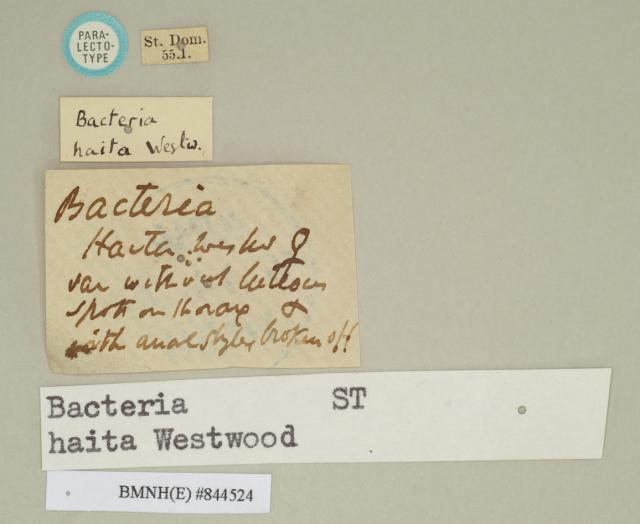 PARA-
LECTO-
TYPE
St. Dom.
55.1.
Bacteria
haita Westw.
Bacteria
Haita Westw ♀
var without luteous
spots on thorax &
with anal styles broken off
Bacteria ST
haita Westwood
BMNH(E) #844524